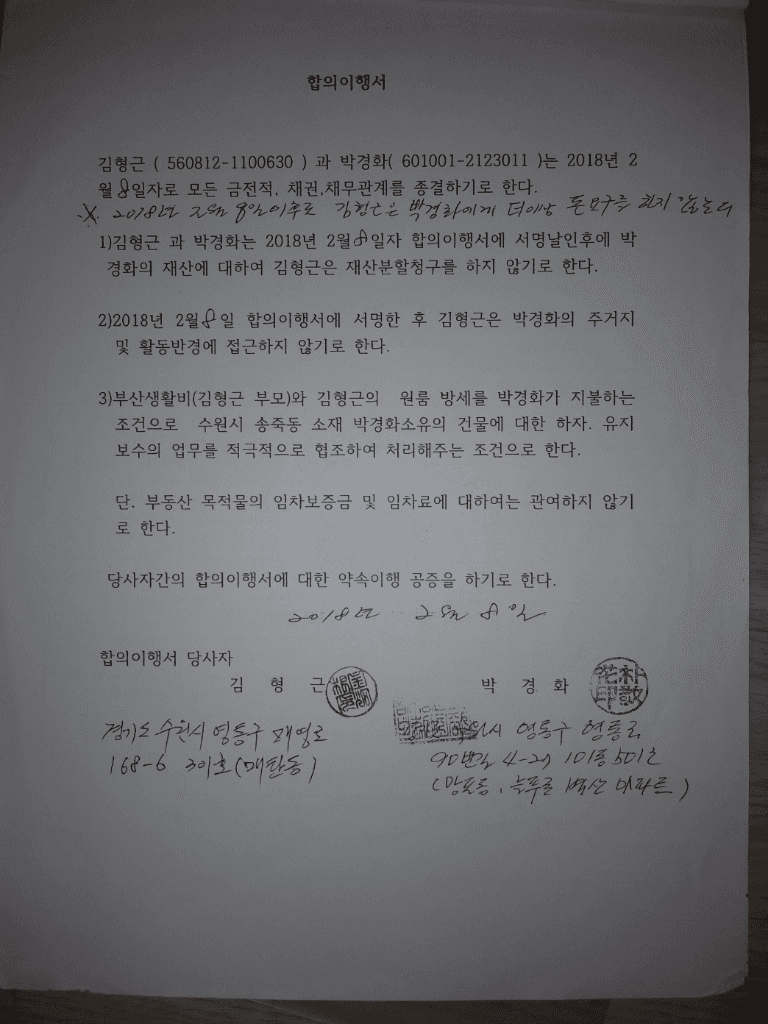 합의이행서
김형근 ( 560812-1100630 ) 과 박경화( 601001-2123011 )는 2018년 2
월 8일자로 모든 금전적, 채권,채무관계를 종결하기로 한다.
※ 2018년 2월 8일이후로 김형근은 박경화에게 더이상 돈요구를 하지 않는다
1)김형근 과 박경화는 2018년 2월8일자 합의이행서에 서명날인후에 박
경화의 재산에 대하여 김형근은 재산분할청구를 하지 않기로 한다.
2)2018년 2월8일 합의이행서에 서명한 후 김형근은 박경화의 주거지
및 활동반경에 접근하지 않기로 한다.
3)부산생활비(김형근 부모)와 김형근의 원룸 방세를 박경화가 지불하는
조건으로 수원시 송죽동 소재 박경화소유의 건물에 대한 하자. 유지
보수의 업무를 적극적으로 협조하여 처리해주는 조건으로 한다.
단. 부동산 목적물의 임차보증금 및 임차료에 대하여는 관여하지 않기
로 한다.
당사자간의 합의이행서에 대한 약속이행 공증을 하기로 한다.
2018년 2월 8일
합의이행서 당사자
김 형 근 박 경 화 朴敬花印
경기도 수원시 영통구 매영로 영통구 영통로
168-6 301호(매탄동) 90번길 4-27 101동 501호
(망포동, 늘푸른 벽산 아파트)